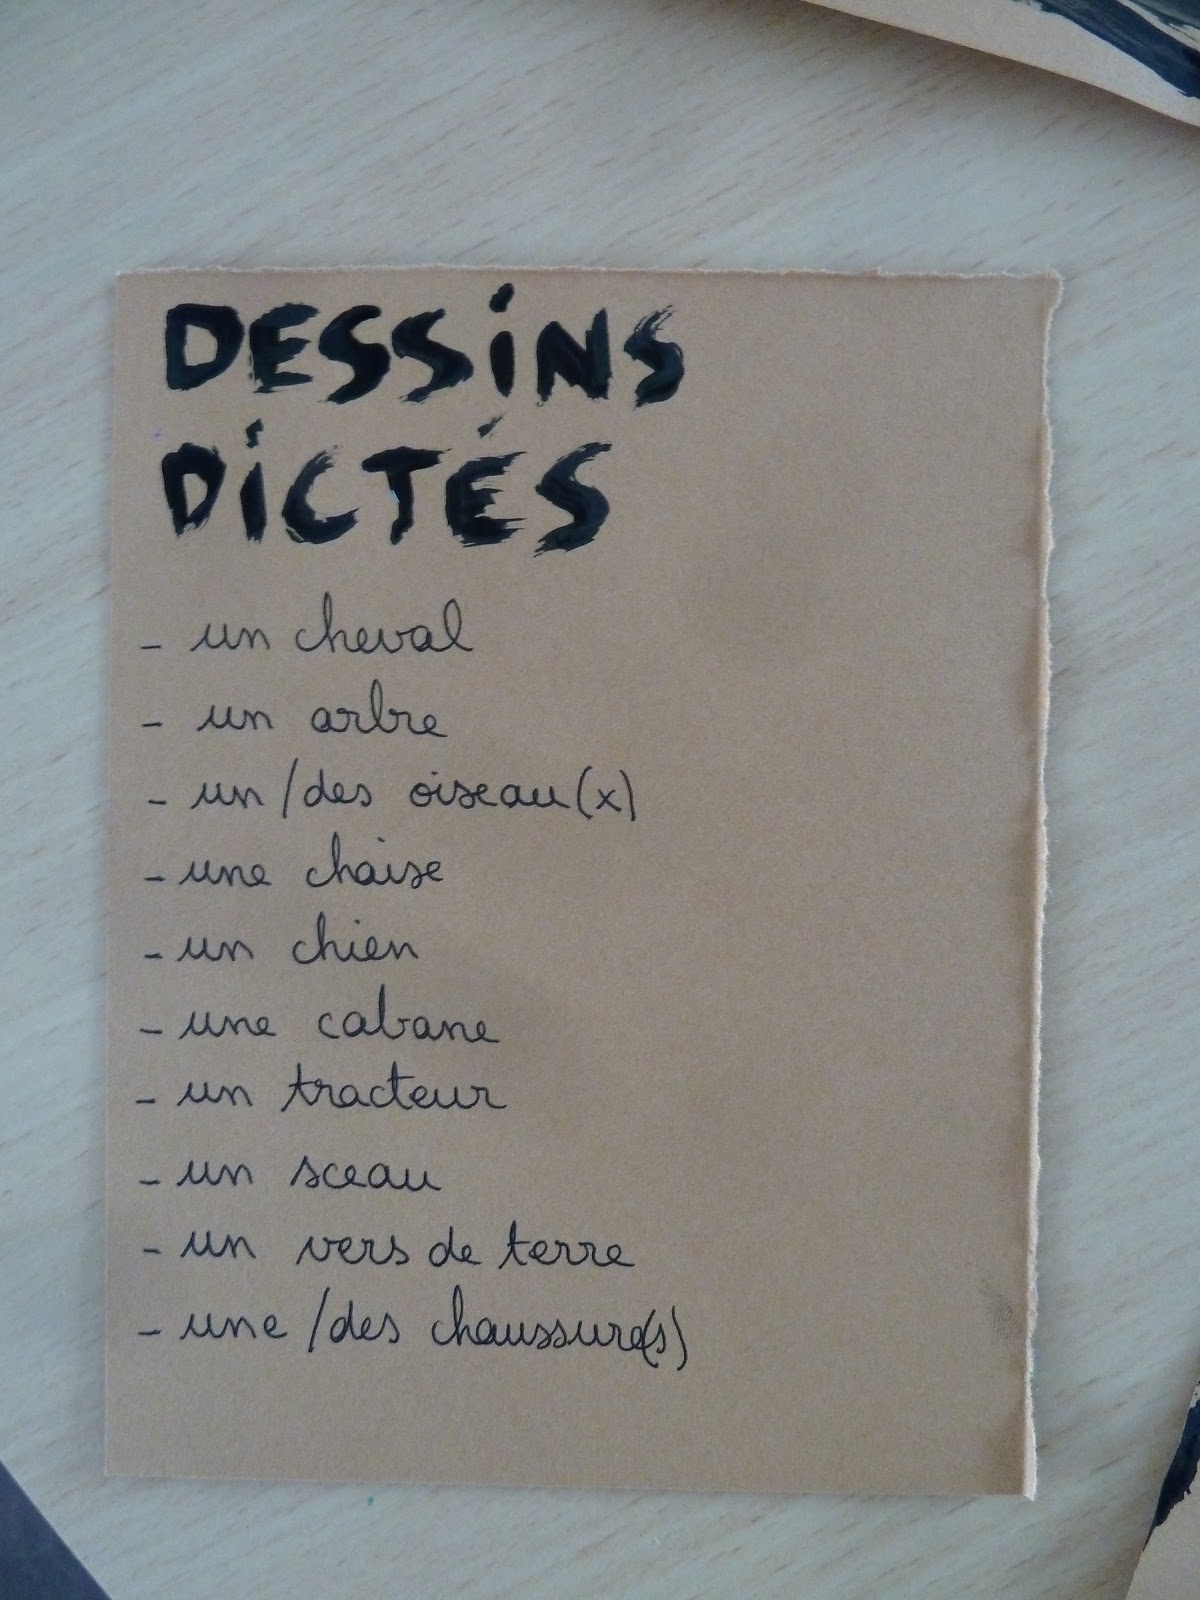 DESSiNS
DiCTÉS
- un cheval
- un arbre
- un/des oiseau(x)
- une chaise
- un chien
- une cabane
- un tracteur
- un sceau
- un vers de terre
- une/des chaussure(s)